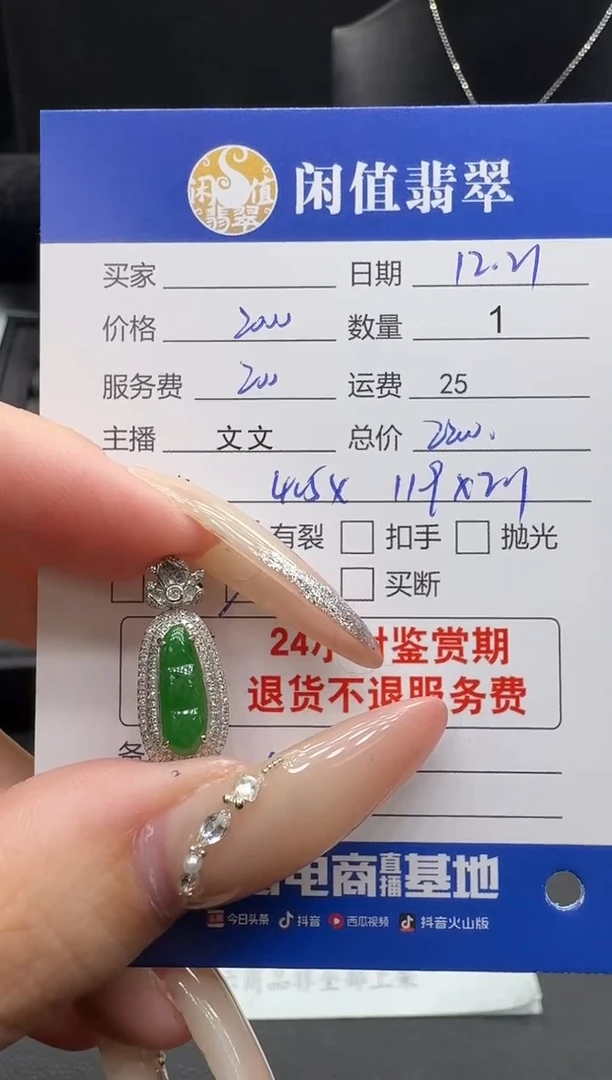 闲值翡翠
闲值翡翠
买家 日期 12.21
价格 2000 数量 1
服务费 200 运费 25
主播 文文 总价 2200.
119
有裂 扣手 抛光
买断
24小时鉴赏期
退货不退服务费
电商直播基地
今日头条 抖音 西瓜视频 抖音火山版